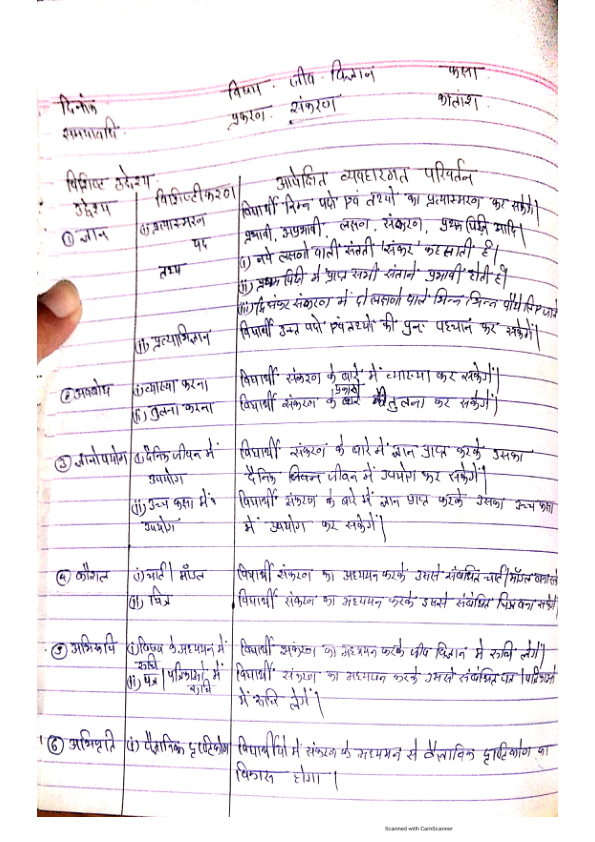 दिनांक विषय - जीव विज्ञान कक्षा
समयावधि प्रकरण - संकरण कालांश
विशिष्ट उद्देश्य
उद्देश्य विशिष्टीकरण अपेक्षित व्यवहारगत परिवर्तन
① ज्ञान (i) प्रत्यास्मरण विद्यार्थी निम्न पदों एवं तथ्यों का प्रत्यास्मरण कर सकेंगे।
पद प्रभावी, अप्रभावी, लक्षण, संकरण, प्रथम पिढ़ी आदि।
तथ्य (i) नये लक्षणों वाली संतती 'संकर' कहलाती है।
(ii) प्रथम पिढी में प्राप्त सभी संताने प्रभावी होती है।
(iii) द्विसंकर संकरण में दो लक्षणों वाले भिन्न भिन्न पौधे
(ii) प्रत्याभिज्ञान विद्यार्थी उक्त पदों एवं तथ्यों की पुनः पहचान कर सकेंगे।
② अवबोध (i) व्याख्या करना विद्यार्थी संकरण के बारे में व्याख्या कर सकेंगे।
(ii) तुलना करना विद्यार्थी संकरण के प्रकारों की तुलना कर सकेंगे।
③ ज्ञानोपयोग (i) दैनिक जीवन में विद्यार्थी संकरण के बारे में ज्ञान प्राप्त करके उसका
उपयोग दैनिक जीवन में उपयोग कर सकेंगे।
(ii) उच्च कक्षा में विद्यार्थी संकरण के बारे में ज्ञान प्राप्त करके उसका उच्च कक्षा
उपयोग में उपयोग कर सकेंगे।
④ कौशल (i) चार्ट / मॉडल विद्यार्थी संकरण का अध्ययन करके उससे संबंधित चार्ट / मॉडल बना सकेंगे
(ii) चित्र विद्यार्थी संकरण का अध्ययन करके उससे संबंधित चित्र बना सकेंगे।
⑤ अभिरुचि (i) विषय के अध्ययन में विद्यार्थी संकरण का अध्ययन करके जीव विज्ञान में रूचि लेंगे।
रूचि
(ii) पत्र / पत्रिकाओं में विद्यार्थी संकरण का अध्ययन करके उससे संबंधित पत्र / पत्रिकाओं
रूचि में रूचि लेंगे।
⑥ अभिवृत्ति (i) वैज्ञानिक दृष्टिकोण विद्यार्थियों में संकरण के अध्ययन से वैज्ञानिक दृष्टिकोण का
विकास होगा।
Scanned with CamScanner